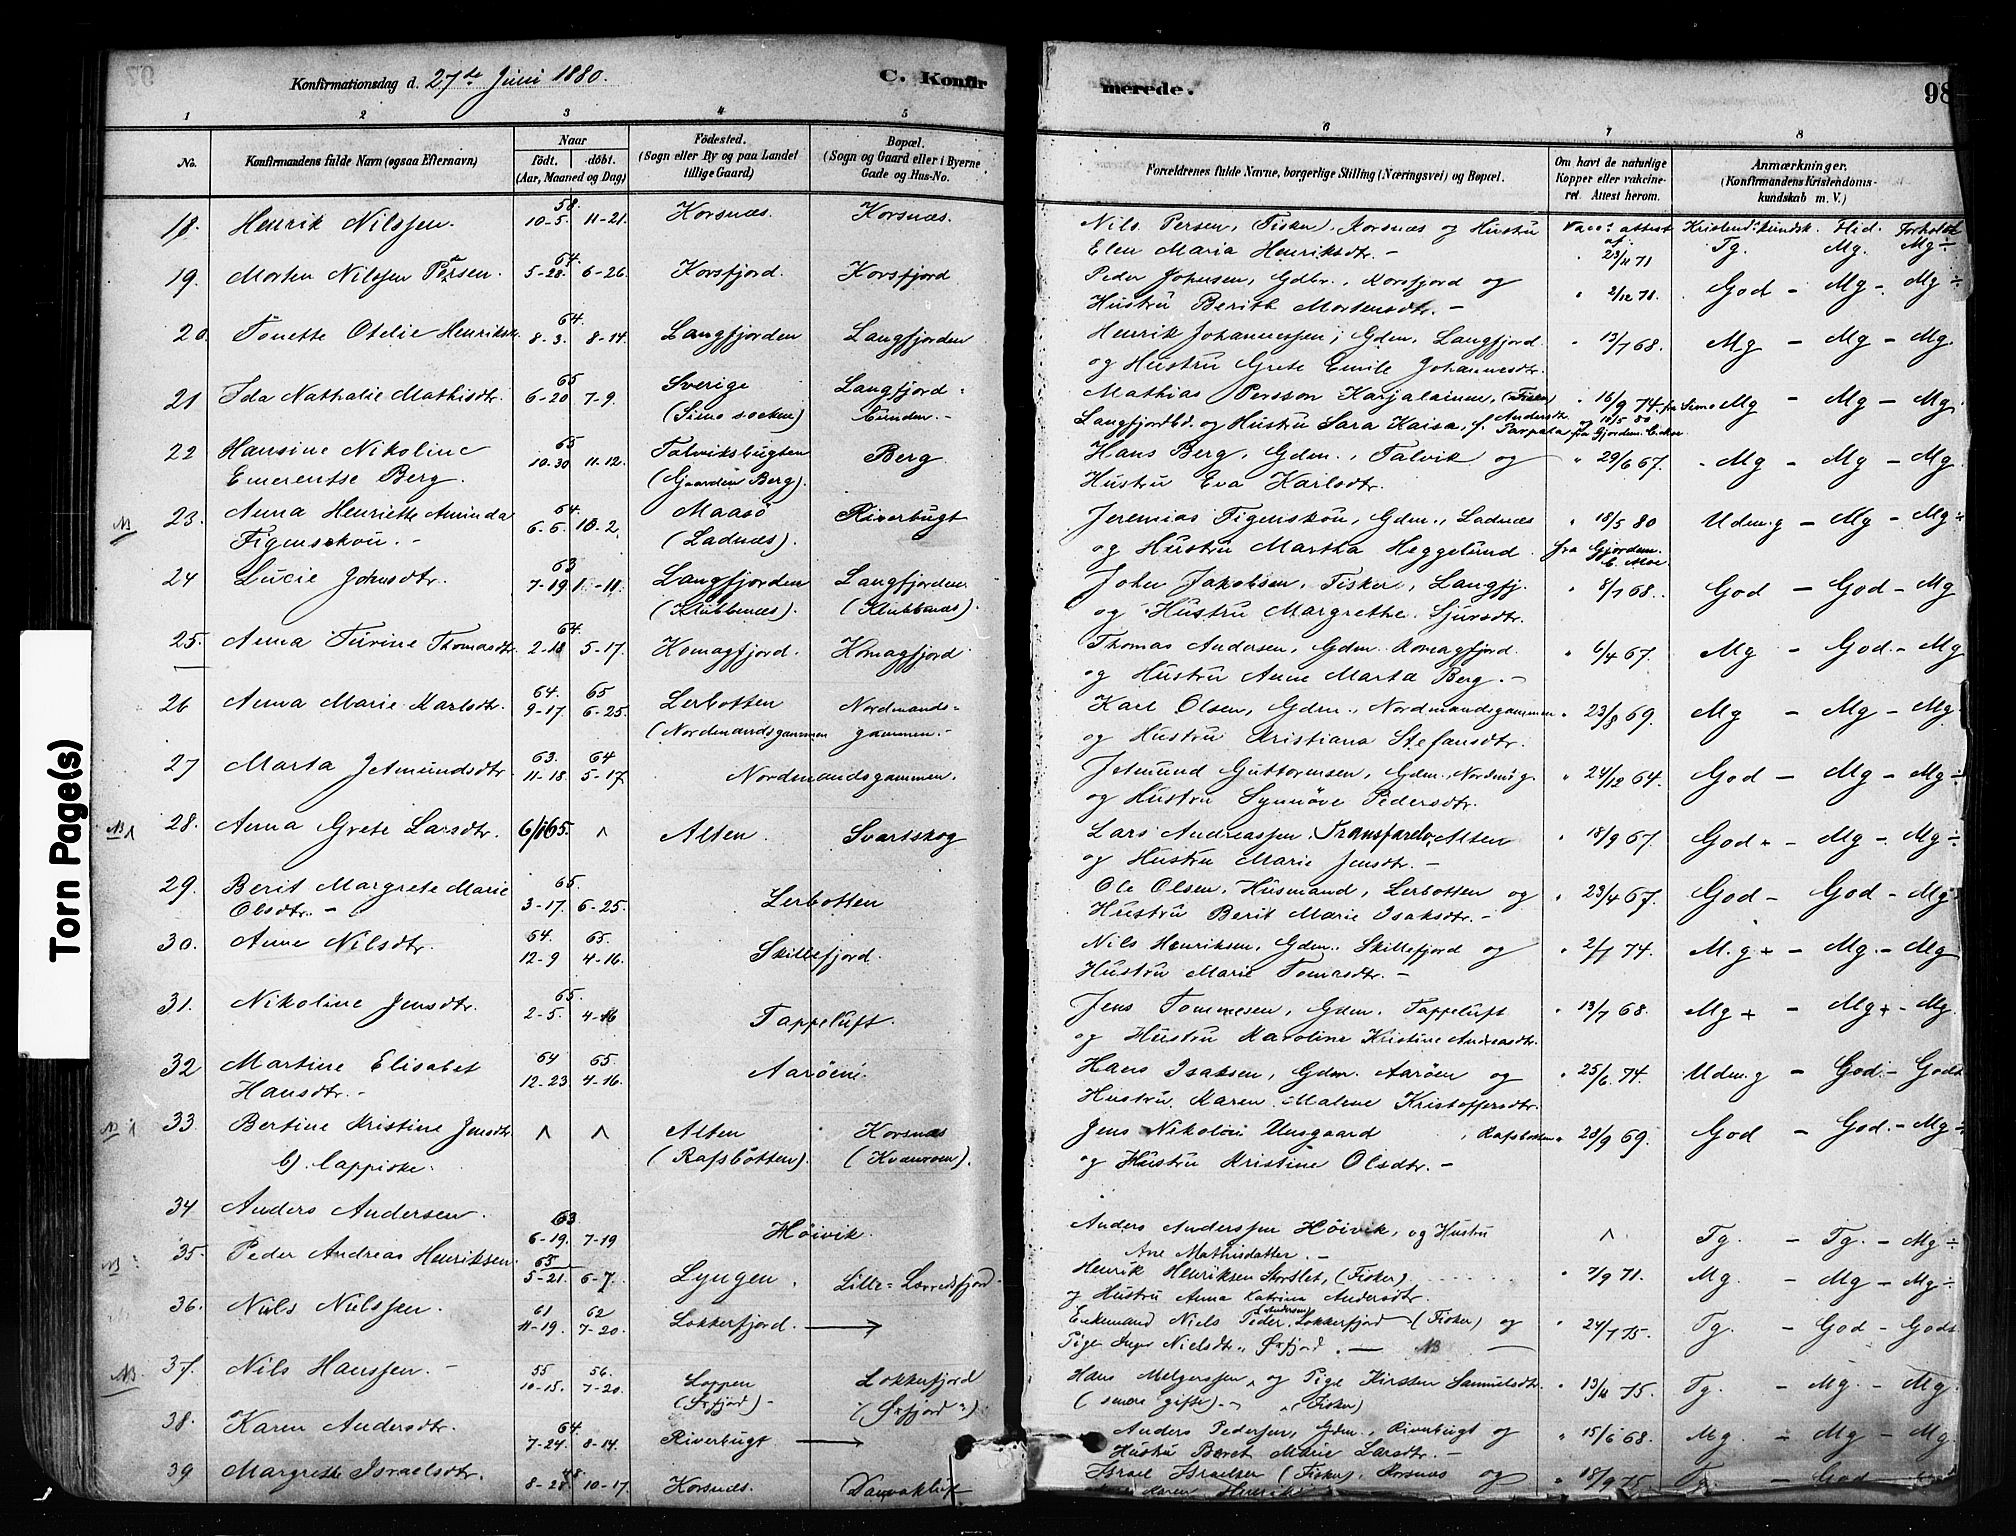 Konfirmationsdag d. 27de Juni 1880.
C. Konfir
merede.
98
1 2 3 4 5 6 7 8
No.
Konfirmandens fulde Navn (ogsaa Efternavn)
Naar
födt. döbt.
(Aar, Maaned og Dag)
Födested.
(Sogn eller By og paa Landet
tillige Gaard)
Bopæl.
(Sogn og Gaard eller i Byerne
Gade og Hus-No.
Forældrenes fulde Navne, borgerlige Stilling (Næringsvei) og Bopæl.
Om havt de naturlige
Kopper eller vakcine-
ret. Attest herom.
Anmærkninger.
(Konfirmandens Kristendoms-
kundskab m. V.)
18. Henrik Nilssen. 58. 10-5. 11-21. Korsnæs. Korsnæs.
Nils Persen, Fisker, Korsnæs og Hustru Vacc: attest af Kristend:kundsk. Flid. Forhold
Elen Maria Henriksdtr. - 23/11 71 Tg. Mg. Mg ÷
19. Morten Nilssen Persen. 64. 5-28. 6-26. Korsfjord. Korsfjord
Peder Johnsen, Gdbr., Korsfjord og
Hustru Berith Mortensdtr. - " 2/12 78. God - Mg - Mg ÷
20. Tonette Otelie Henriksdtr 64. 8-3. 8-14. Langfjorden Langfjorden
Henrik Johannessen, Gdm., Langfjord " 13/7 68. Mg - Mg - Mg.
og Hustru Grete Emilie Johannesdtr.
21 Ida Nathalie Mathisdtr. 65 6-20 7-9. Sverige Langfjord-
(Simo socken) bunden. -
Mathias Persson Karjalainen, (Fisker) " 16/9 74. fra Simo Mg - Mg - Mg.
Langfjordbd. og Hustru Sara Kaisa, f. Andersdtr og 18/5 80 fra Gjordem.
22 Hansine Nikoline 65 10.30 11-12. Talviksbugten Berg.
Emerentse Berg. (Gaarden Berg).
Hans Berg, Gdm., Talvik og " 29/6 67. - Mg - Mg - Mg.
Hustru Eva Karlsdtr.
NB 23. Anna Henriette Aminda 64. 6-6. 10-2. Maasö Riverbugt
Figenskou. - (Ladnæs).
Jeremias Figenskou, Gdm., Ladnæs " 18/5 80 Udm.g - Mg - Mg ÷
og Hustru Martha Heggelund. fra Gjordem. E. Moe.
24 Lucie Johnsdtr. 63 7-19 1-11. Langfjorden Langfjorden
(Klubbenæs). (Klubbenæs).
John Jakobsen, Fisker, Langfj. " 8/7 68. God - God - Mg
og Hustru Margrethe Sjursdtr.
25. Anna Turine Thomasdtr. 64. 2-18 5-17. Komagfjord. Komagfjord
Thomas Andersen, Gdm. Komagfjord. " 6/4 67. Mg - God - Mg
og Hustru Anne Marta Berg. -
26 Anna Marie Karlsdtr. 64. 9-17 65 6-25. Lerbotten Nordmands-
(Nordmandsgammen gammen. -
Karl Olsen, Gdm., Nordmandsgammen " 23/8 69. Mg - Mg - Mg.
og Hustru Kristiana Stefansdtr.
27 Marta Jetmundsdtr. 63. 11-18. 64 5-17 Nordmandsgammen.
Jetmund Guttormsen, Gdm., Nordm.g. " 24/12 64. God - Mg - Mg ÷
og Hustru Synnöve Pedersdtr.
NB 28. Anna Grete Larsdtr. 6/1 65. ^ Alten. Svartskog
Lars Andreassen Transfarelv, Alten " 18/9 67. God + - Mg - Mg ÷
og Hustru Marie Jensdtr. -
29. Berit Margrete Marie 65. 3-17. 6-25. Lerbotten
Olsdtr. -
Ole Olsen, Husmand, Lerbotten og " 23/4 67. God - God - Mg
Hustru Berit Marie Isaksdtr. -
30. Anne Nilsdtr. 64. 12-9 65. 4-16. Skillefjord.
Nils Henriksen, Gdm. Skillefjord og " 2/7 74. M.g + - Mg. - Mg
Hustru Marie Tomasdtr. -
31. Nikoline Jensdtr. 65. 2-5. 4-16 Tappeluft.
Jens Tommesen, Gdm. Tappeluft " 13/7 68. Mg + - Mg + - Mg.
og Hustru Karoline Kristine Andreasdtr.
32 Martine Elisabet 64 12-23 65. 4-16. Aaröen.
Hansdtr. -
Hans Isaksen, Gdm. Aaröen og " 25/6 74. Udm.g - God - Godt
Hustru Karen Malene Kristoffersdtr.
NB 33. Bertine Kristine Jensdtr. ^ ^ Alten Korsnæs
b). Cappiske. (Rafsbotten). (Kvænvoen).
Jens Nikolai Unsgaard, Rafsbotten " 28/9 69. God - God - Mg ÷
og Hustru Kristine Olsdtr. -
34 Anders Andersen. 63 6-19. 7-19 Höivik.
Anders Anderssen Höivik, og Hustru ^ Tg. - Tg. - Mg ÷
Ane Mathisdatter. -
NB 35. Peder Andreas Henriksen. 65 5-21. 6-7. Lyngen. Lille-Lerredsfjord
Henrik Henriksen Storslet, (Fisker) " 7/9 71. Mg. - Mg - Mg ÷
og Hustru Anna Katrina Andersdtr.
36. Niels Nielssen. 61 11-19. 62 7-20. Lokkerfjord. ⟶
Enkemand Niels Peder Andersen, Lokkerfjord (Fisker) og " 24/7 75. Tg. - God - Godt
Pige Inger Nielsdtr. Øxfjord. - NB -
NB 37. Nils Hanssen. - 55 10-15. 56. 7-20. Loppen Lokkerfjord
(Øxfjord) - (Øxfjord)
Hans Melgerssen og Pige Kirsten Samuelsdtr. " 13/11 75. Tg. - Mg. - Mg.
(senere gifte). - (Fisker)
38. Karen Andersdtr. 64. 7-24. 8-14. Riverbugt ⟶
Anders Pedersen, Gdm., Riverbugt og " 15/6 68. Mg. - Mg - Mg
Hustru Beret Marie Larsdtr. -
39 Margrethe Israelsdtr. 48. 8-28 10-17. Korsnæs.
Israel Israelsen (Fisker), Korsnæs og " 18/9 75. Tg. - God
Karen Henriks
Torn Page(s)